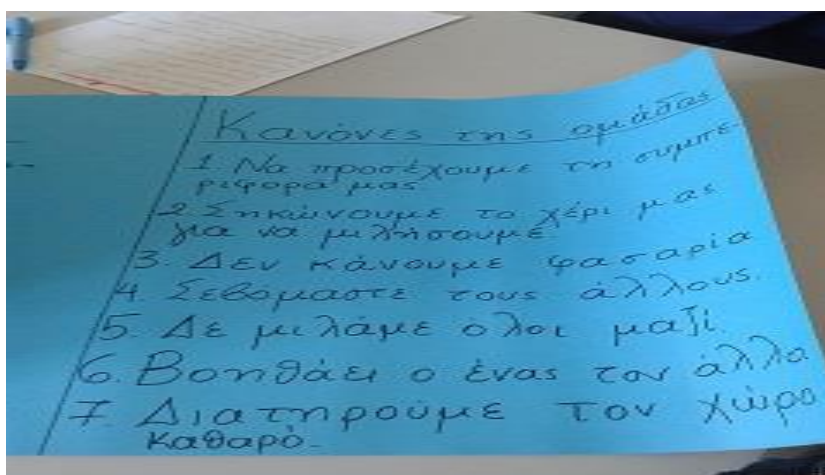 Κανόνες της ομάδας
1 Να προσέχουμε τη συμπε-
ριφορά μας
2. Σηκώνουμε το χέρι μας
για να μιλήσουμε
3. Δεν κάνουμε φασαρία
4 Σεβόμαστε τους άλλους.
5. Δε μιλάμε όλοι μαζί.
6. Βοηθάει ο ένας τον άλλο
7. Διατηρούμε τον χώρο
καθαρό.